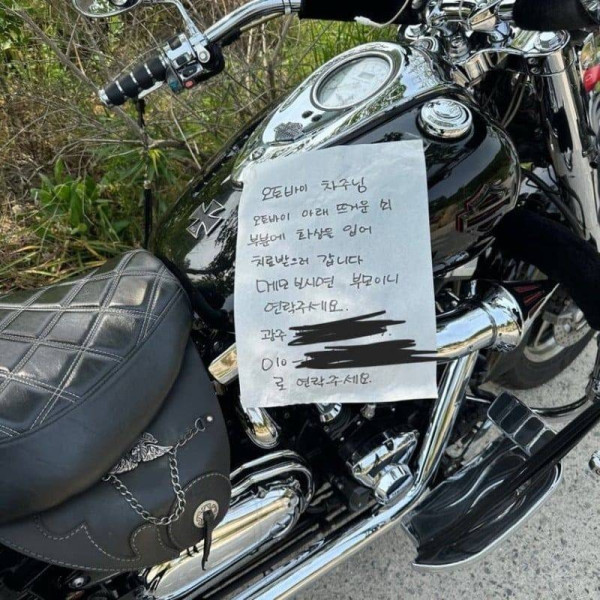 오토바이 차주님
오토바이 아래 뜨거운 쇠
부분에 화상을 입어
치료받으러 갑니다
메모 보시면 부모이니
연락주세요.
광주
010-
로 연락주세요.